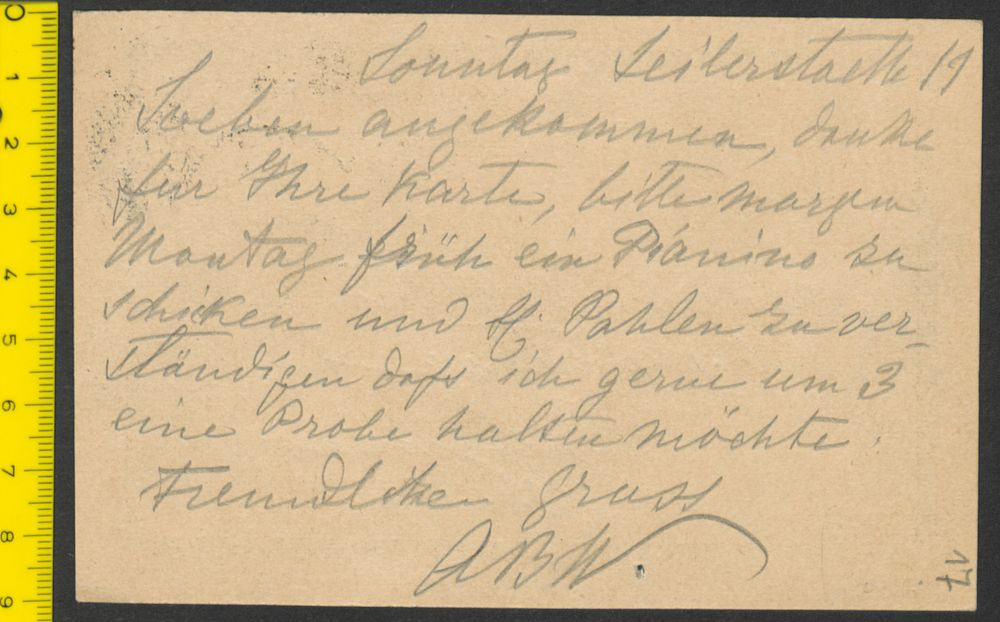 Sonntag Seilerstaette 19
Soeben angekommen, danke
für Ihre Karte, bitte morgen
Montag früh ein Pianino zu
schicken und H. Pahlen zu ver-
ständigen dafs ich gerne um 3
eine Probe halten möchte.
Freundlichen Gruss
ABW.
17
0
1
2
3
4
5
6
7
8
9